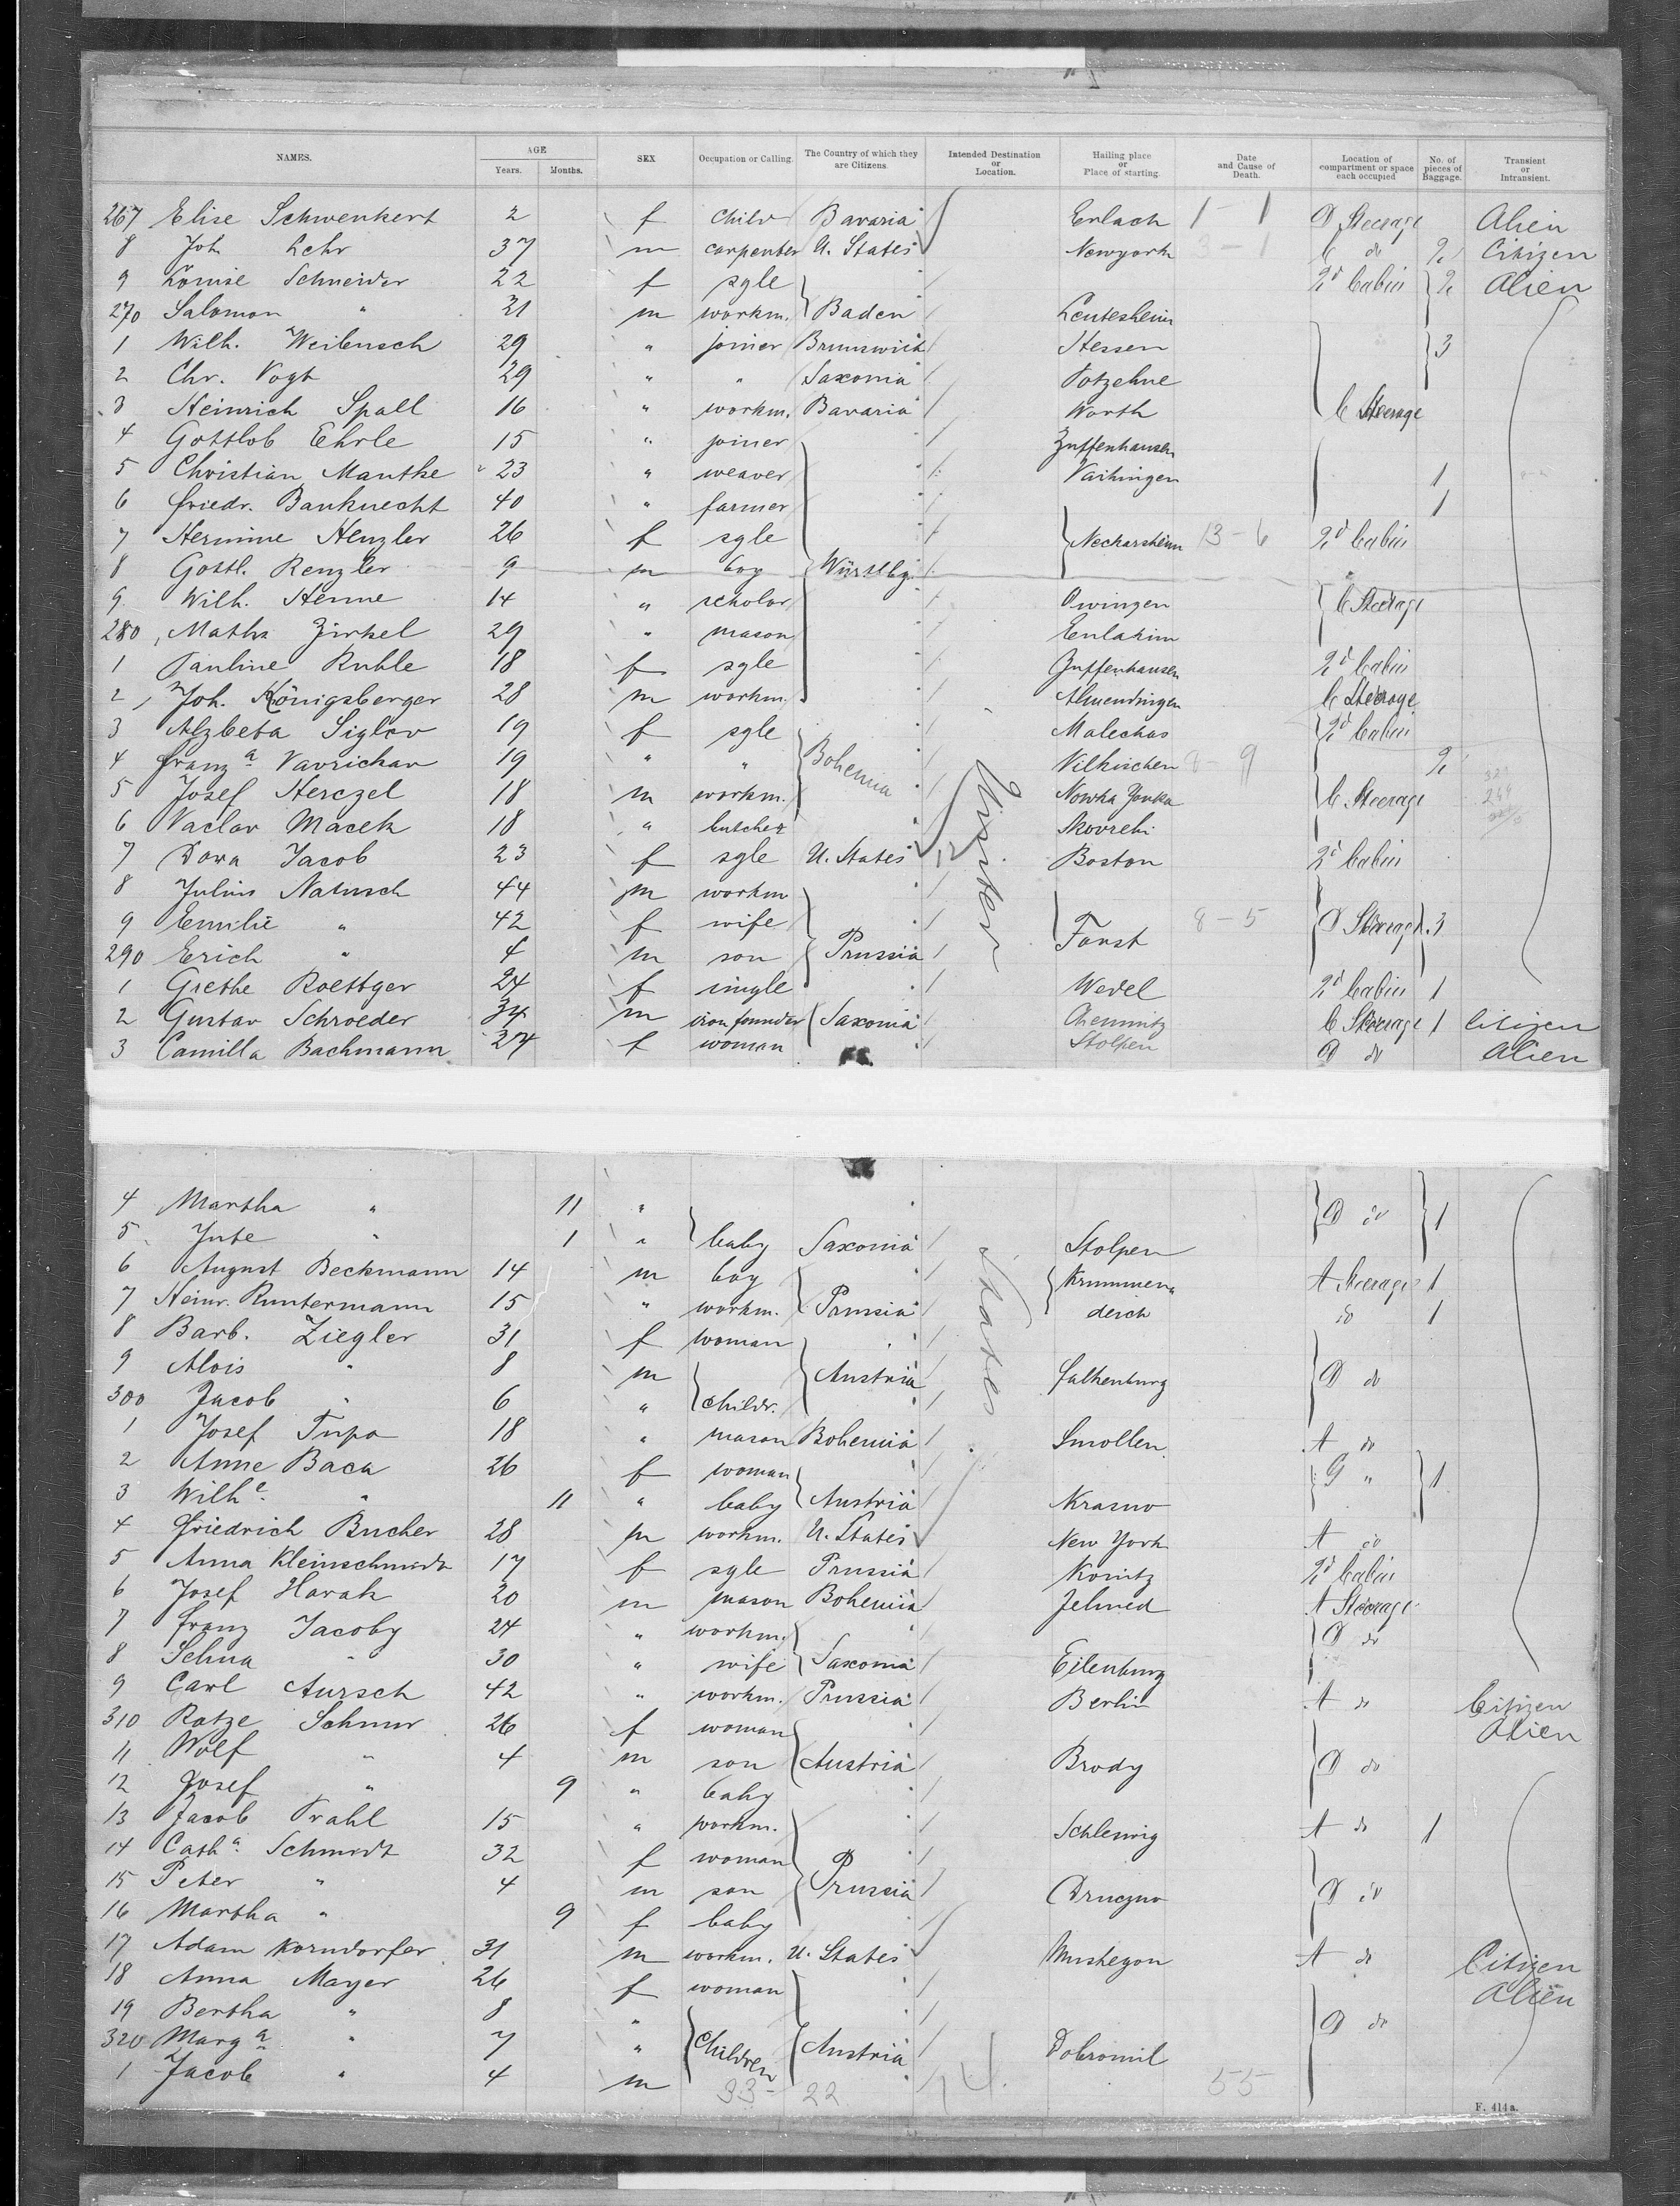 NAMES. AGE Years. Months. SEX Occupation or Calling. The Country of which they are Citizens. Intended Destination or Location. Hailing place or Place of starting. Date and Cause of Death. Location of compartment or space each occupied No. of pieces of Baggage. Transient or Intransient.
267 Elise Schwenkert 2 f child Bavaria Erlach 1-1 D Steerage Alien
8 Joh Lehr 37 m carpenter U. States Newyork 3-1 C do 2 Citizen
9 Louise Schneider 22 f sgle 2d Cabin 2 Alien
270 Salomon " 21 m workm. Baden Leutesheim
1 Wilh. Weibusch 29 " joiner Brunswick Hessen 3
2 Chr. Vogt 29 " " Saxonia Potzehne
3 Heinrich Spall 16 " workm. Bavaria Worth C Steerage
4 Gottlob Ehrle 15 " joiner Zuffenhausen
5 Christian Manthe 23 " weaver Vaihingen 1
6 Friedr. Bauknecht 40 " farmer 1
7 Hermine Henzler 26 f sgle Neckarsheim 13-6 2d Cabin
8 Gottl. Renzler 9 m boy Würtbg.
9 Wilh. Henne 14 " scholar Owingen C Steerage
280 Maths Zirkel 29 " mason
1 Pauline Ruhle 18 f sgle Zuffenhausen 2d Cabin
2 Joh. Königsberger 28 m workm. Almendingen C Steerage
3 Alzbeta Siglov 19 f sgle Malechas 2d Cabin
4 Franza Vavrichav 19 " " Bohemia Vilkischen 8-9 2
5 Josef Herczel 18 m workm. C Steerage
6 Vaclav Macek 18 " butcher Skovrebi
7 Dora Jacob 23 f sgle U. States 12 Boston 2d Cabin
8 Julius Natusch 44 m workm
9 Emilie " 42 f wife Forst 8-5 D Steerage 3
290 Erich " 4 m son Prussia
1 Grethe Roettger 24 f single Wedel 2d Cabin 1
2 Gustav Schroeder 34 m iron founder Saxonia Chemnitz C Steerage 1 Citizen
3 Camilla Bachmann 27 f woman Stolpen D do Alien
4 Martha " 11 " D do 1
5 " 1 " baby Saxonia Stolpen
6 August Beckmann 14 m boy Krummen A Steerage 1
7 Heinr. Runtermann 15 " workm. Prussia deich do 1
8 Barb. Ziegler 31 f woman
9 Alois " 8 m Austria Falkenburg D do
300 Jacob " 6 " childr.
1 Josef Tupa 18 " mason Bohemia Smollen A do
2 Anne Baca 26 f woman G "
3 Wilhe " 11 " baby Austria Krasno 1
4 Friedrich Bucher 28 m workm. U. States New York A do
5 Anna Kleinschmidt 17 f sgle Prussia Konitz 2d Cabin
6 Josef Havak 20 m mason Bohemia Jelmed A Steerage
7 Franz Jacoby 24 " workm. D do
8 Selma " 30 " wife Saxonia Eilenburg
9 Carl Aursch 42 " workm. Prussia Berlin A do Citizen
310 Ratze Schnur 26 f woman Alien
11 Wolf " 4 m son Austria Brody D do
12 Josef " 9 " baby
13 Jacob Prahl 15 " workm. Schleswig A do 1
14 Catha Schmidt 32 f woman
15 Peter " 4 m son Prussia Druczno D do
16 Martha " 9 f baby
17 Adam Korndorfer 31 m workm. U. States Muskegon A do Citizen
18 Anna Mayer 26 f woman Alien
19 Bertha " 8 " D do
320 Marga " 7 " Children Austria Dobromil
1 Jacob " 4 m
33- 22 14 55
F. 414a.
States